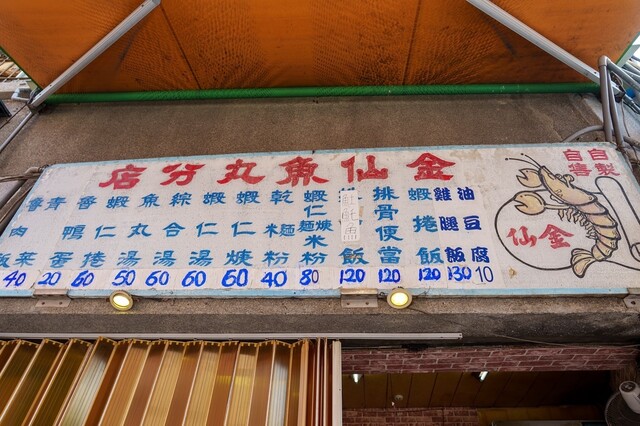 金仙魚丸分店
自製
自售
金仙
油豆腐 10
雞腿飯 130
蝦捲飯 120
排骨便當 120
飯 120
蝦仁麵焿米粉 80
乾麵米粉 40
蝦仁焿 60
蝦仁湯 60
綜合湯 60
魚丸湯 50
蝦仁捲 60
鴨蛋 20
青菜
肉飯 40